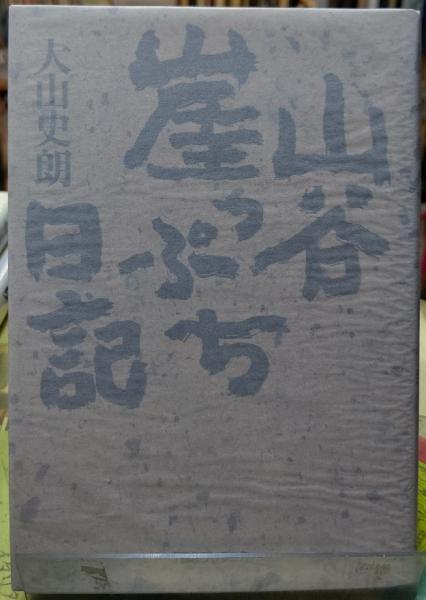 山谷
崖っぷち
日記
大山史朗